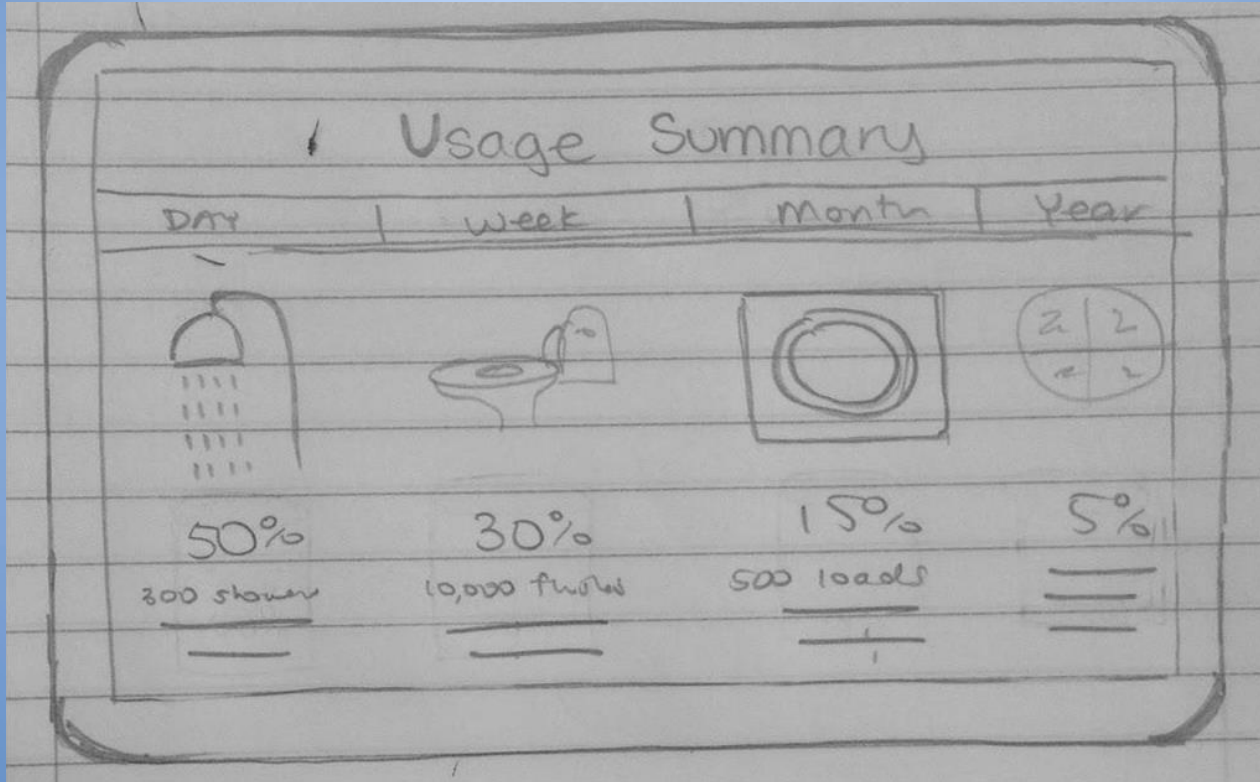 Usage Summary
DAY | Week | Month | Year
50% 30% 15% 5%
300 showers 10,000 flushes 500 loads